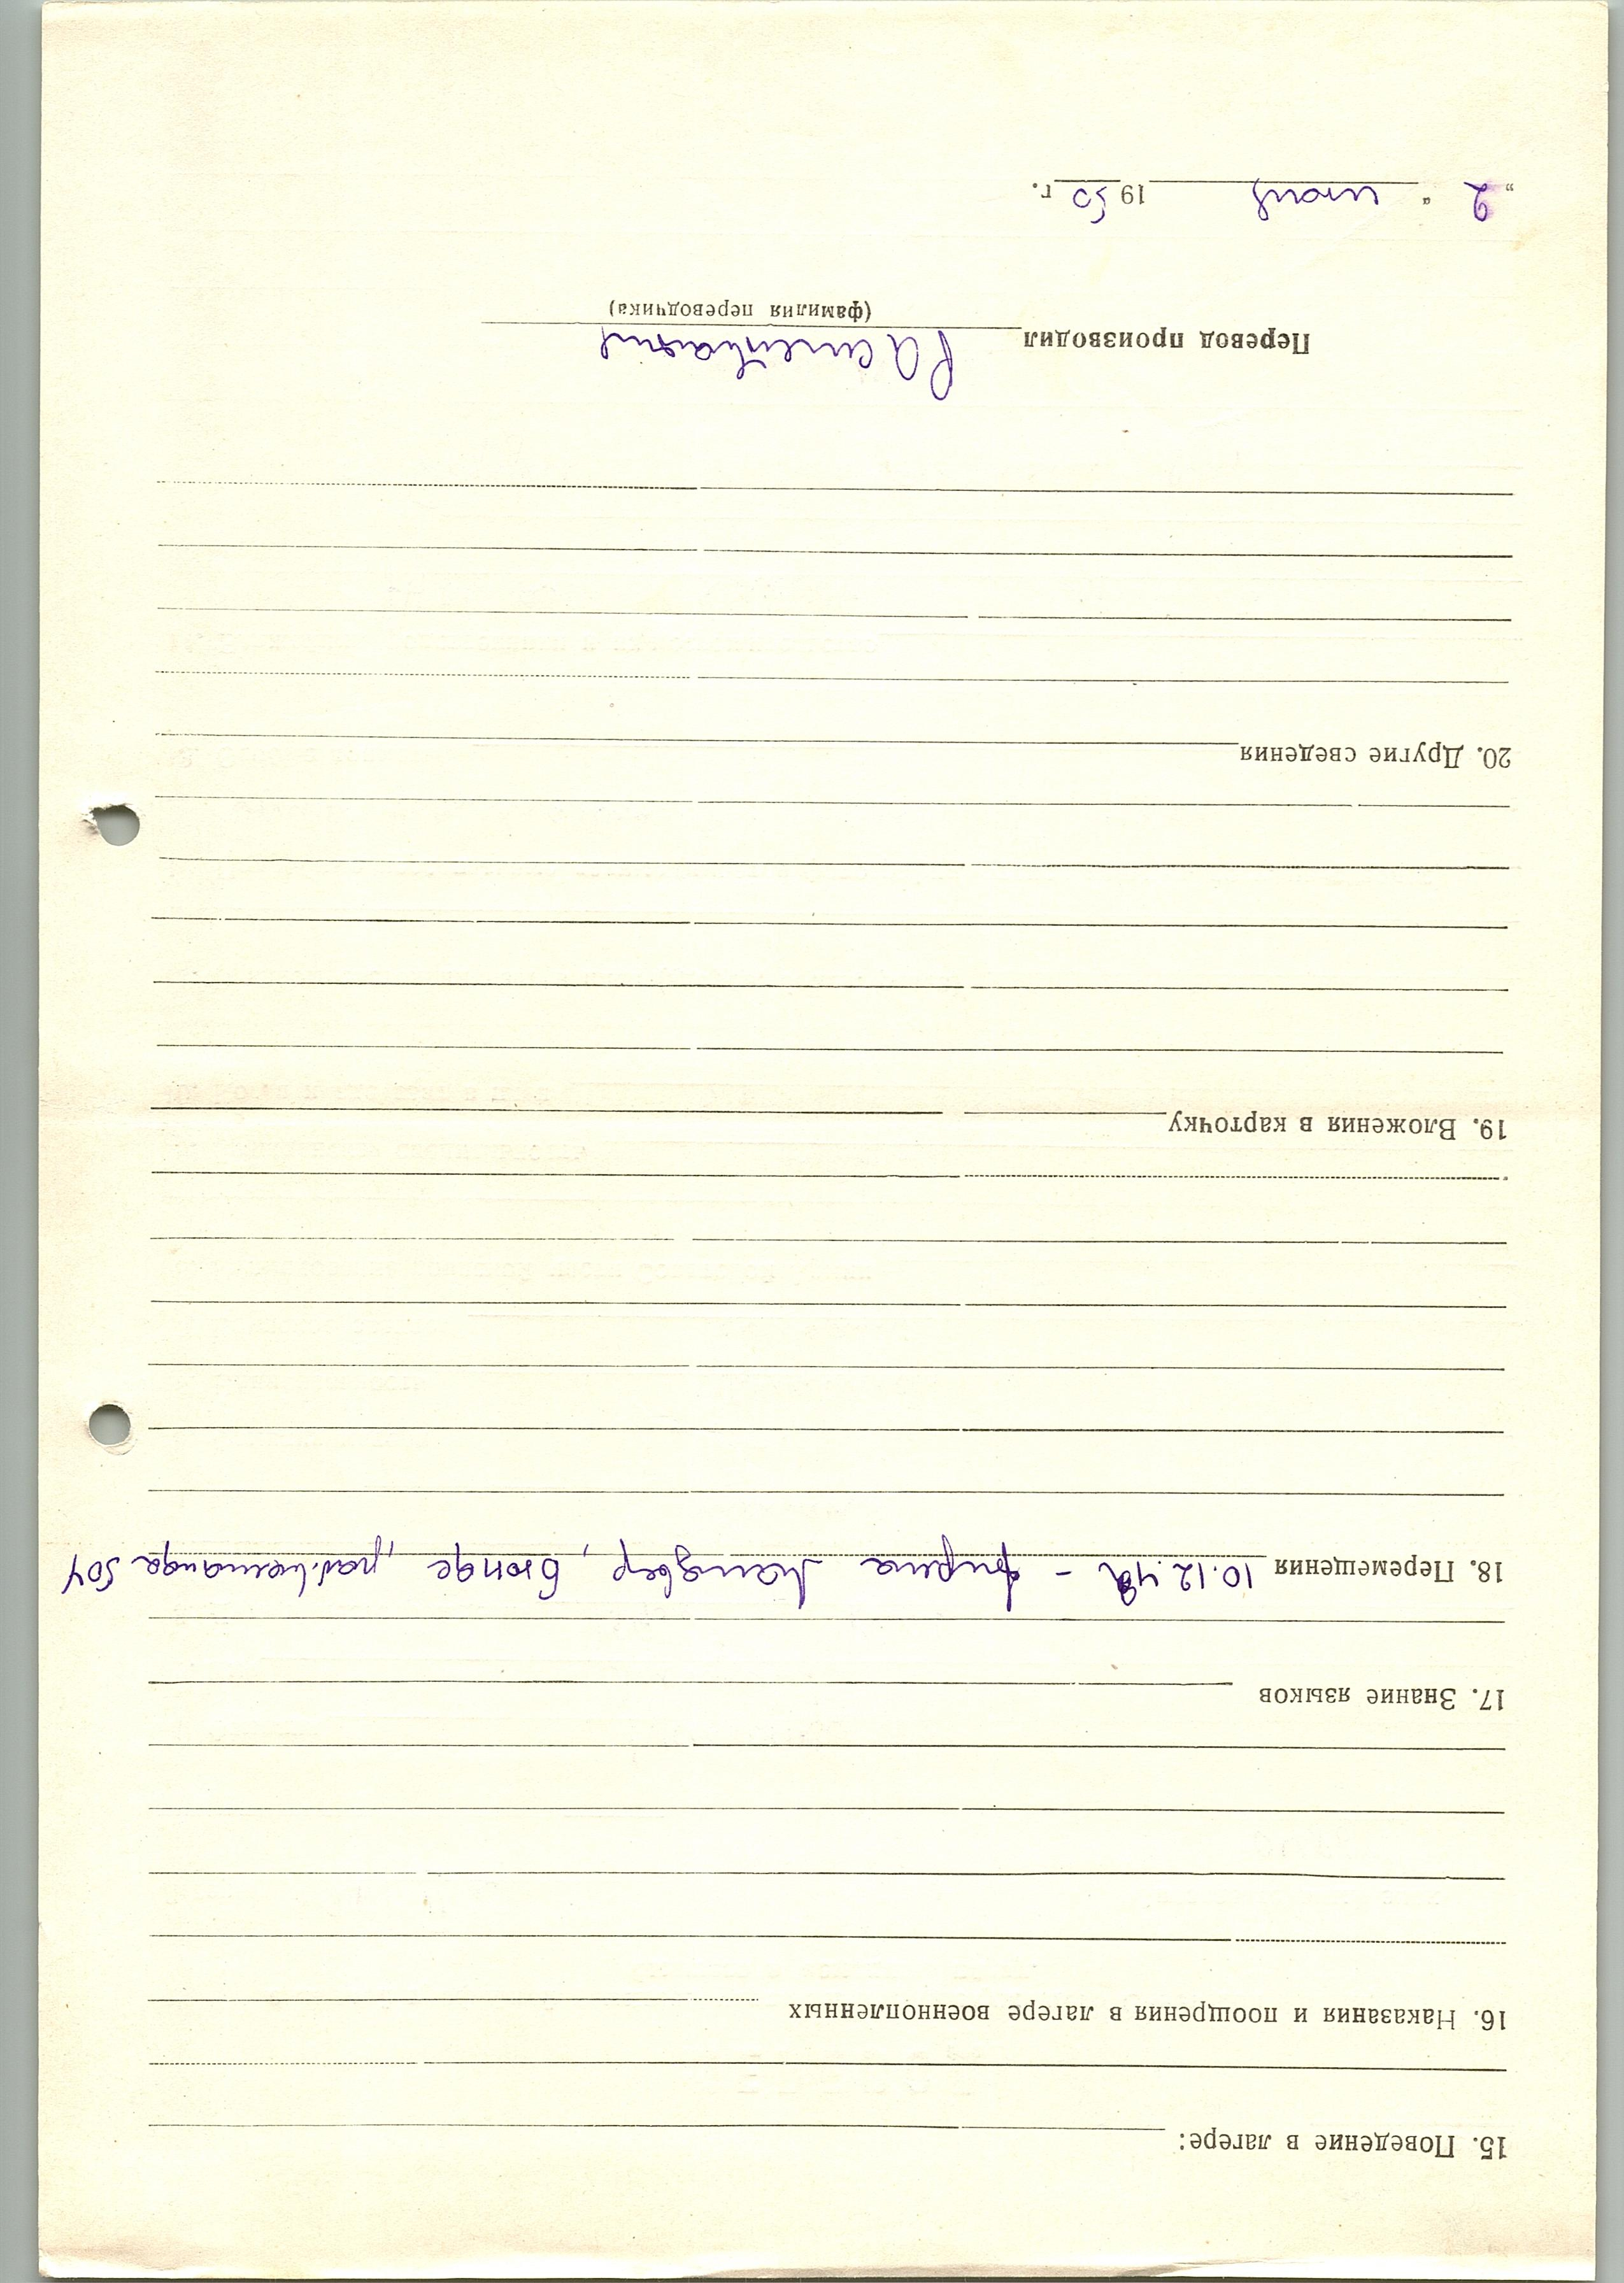 15. Поведение в лагере:
16. Наказания и поощрения в лагере военнопленных
17. Знание языков
18. Перемещения 10.12.42 – фирма Мансвер, Бюнде, раб.команда 504
19. Вложения в карточку
20. Другие сведения
Перевод производил
(фамилия переводчика)
„2“ июня 1950 г.